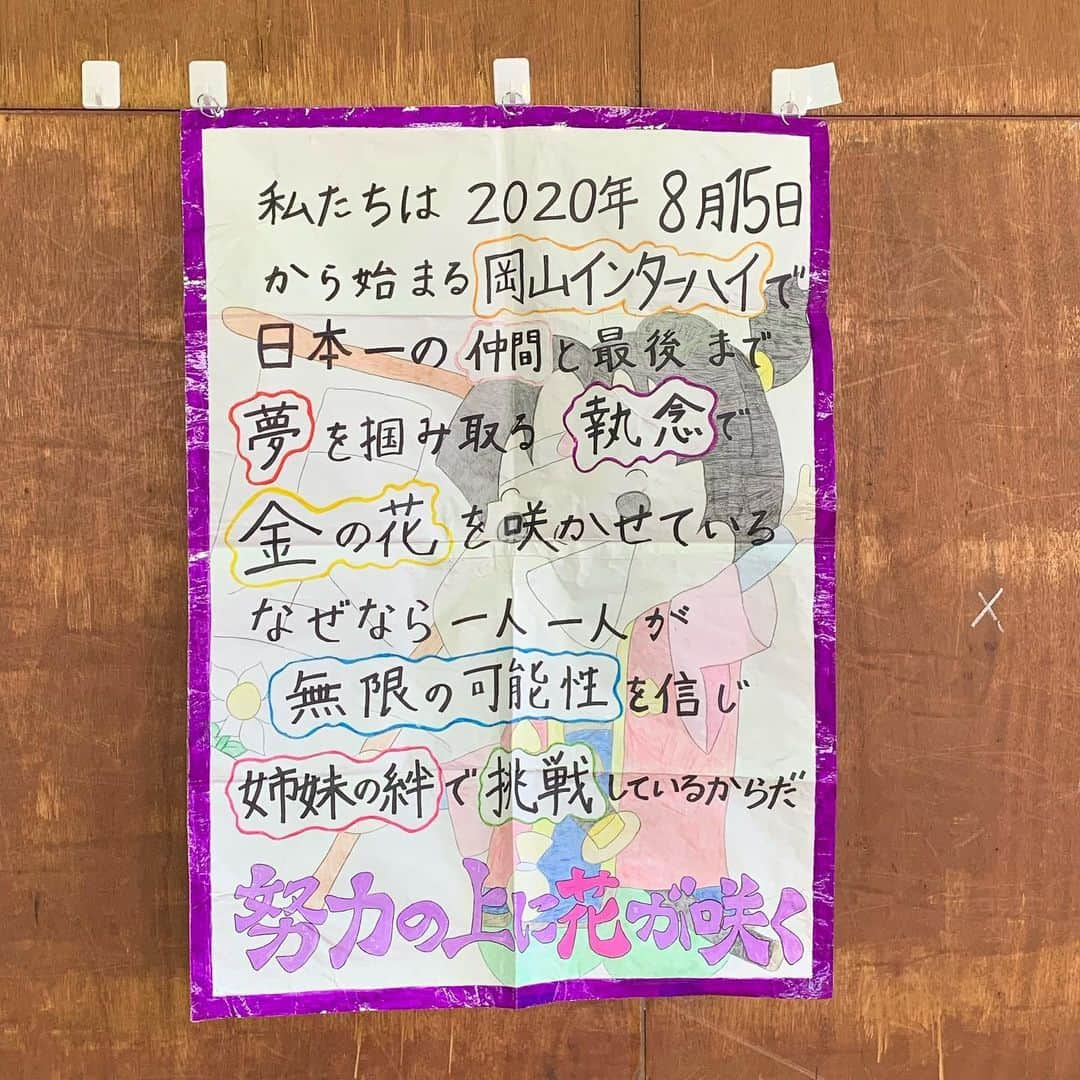 私たちは 2020年 8月15日
から始まる岡山インターハイで
日本一の仲間と最後まで
夢を掴み取る執念で
金の花を咲かせている
なぜなら一人一人が
無限の可能性を信じ
姉妹の絆で挑戦しているからだ
努力の上に花が咲く